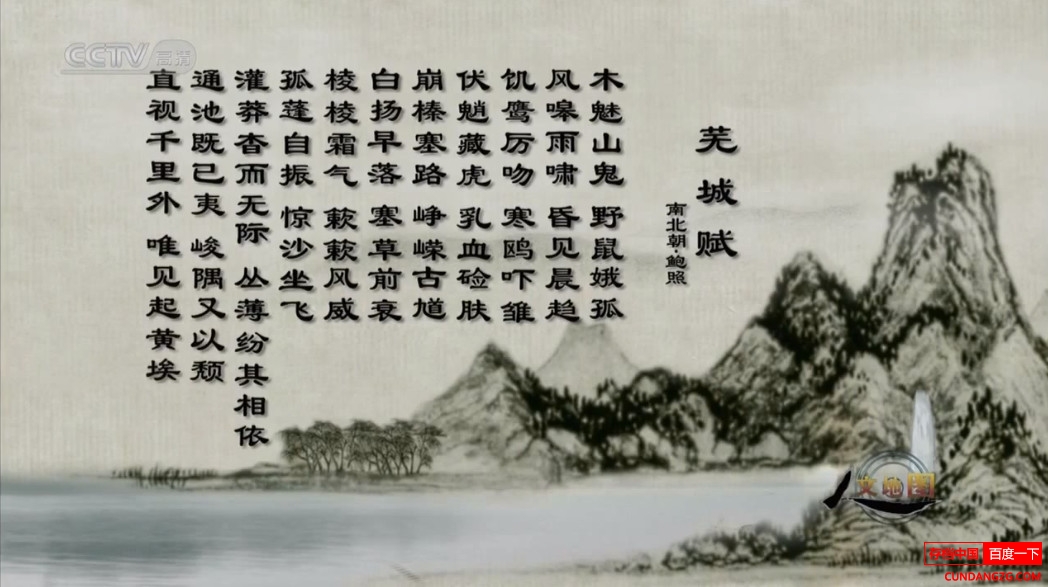 芜城赋
南北朝·鲍照
木魅山鬼 野鼠娥孤
风嗥雨啸 昏见晨趋
饥鹰厉吻 寒鸱吓雏
伏魈藏虎 乳血硷肤
崩榛塞路 峥嵘古馗
白扬早落 塞草前衰
棱棱霜气 蔌蔌风威
孤蓬自振 惊沙坐飞
灌莽杳而无际 丛薄纷其相依
通池既已夷 峻隅又以颓
直视千里外 唯见起黄埃
CCTV 高清
人文地图
存档中国 百度一下
CUNDANGZG.COM